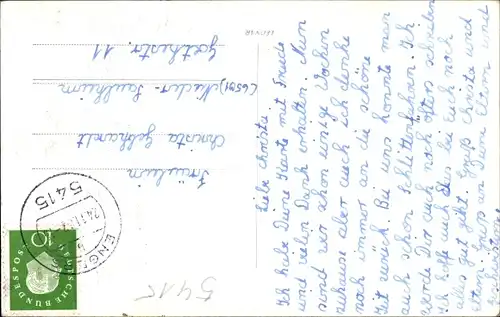 Liebe Christa!
Ich habe Deine Karte mit Freude
und vielen Dank erhalten. Nun
sind wir schon einige Wochen
zuhause aber auch ich denke
noch immer an die schöne
Zeit zurück. Bei uns konnte man
auch schon Schlittenfahren. Ich
werde Dir auch noch öfters schreiben
Ich hoffe auch das bei Euch noch
alles gut geht. Grüße Christa und
Eltern. Gruß an Deine Eltern und
Fräulein
Christa Gebhardt
(6501) Nieder-Saulheim
Goethestr. 11
5415
ENGE
24.11.
10
DEUTSCHE BUNDESPOST
5415